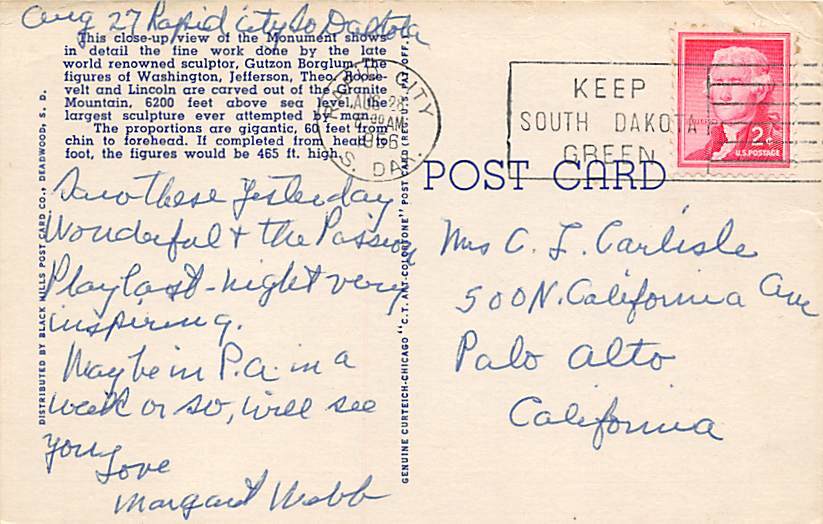 Aug 27 Rapid City So Dakota
This close-up view of the Monument shows
in detail the fine work done by the late
world renowned sculptor, Gutzon Borglum. The
figures of Washington, Jefferson, Theo. Roose-
velt and Lincoln are carved out of the Granite
Mountain, 6200 feet above sea level, the
largest sculpture ever attempted by man.
The proportions are gigantic, 60 feet from
chin to forehead. If completed from head to
foot, the figures would be 465 ft. high.
Saw these Yesterday
Wonderful & the Passion
Play last-night very
inspiring.
Maybe in P.A. in a
week or so, will see
you
Love
Margaret Webb
DISTRIBUTED BY BLACK HILLS POST CARD CO., DEADWOOD, S. D.
GENUINE CURTEICH-CHICAGO "C.T. ART-COLORTONE" POST CARD (REG. U.S. PAT. OFF.)
RAPID CITY
AUG 28
AM
1956
S. DAK.
KEEP
SOUTH DAKOTA
GREEN
2¢
U.S. POSTAGE
POST CARD
Mrs C. L. Carlisle
500 N. California Ave
Palo Alto
California